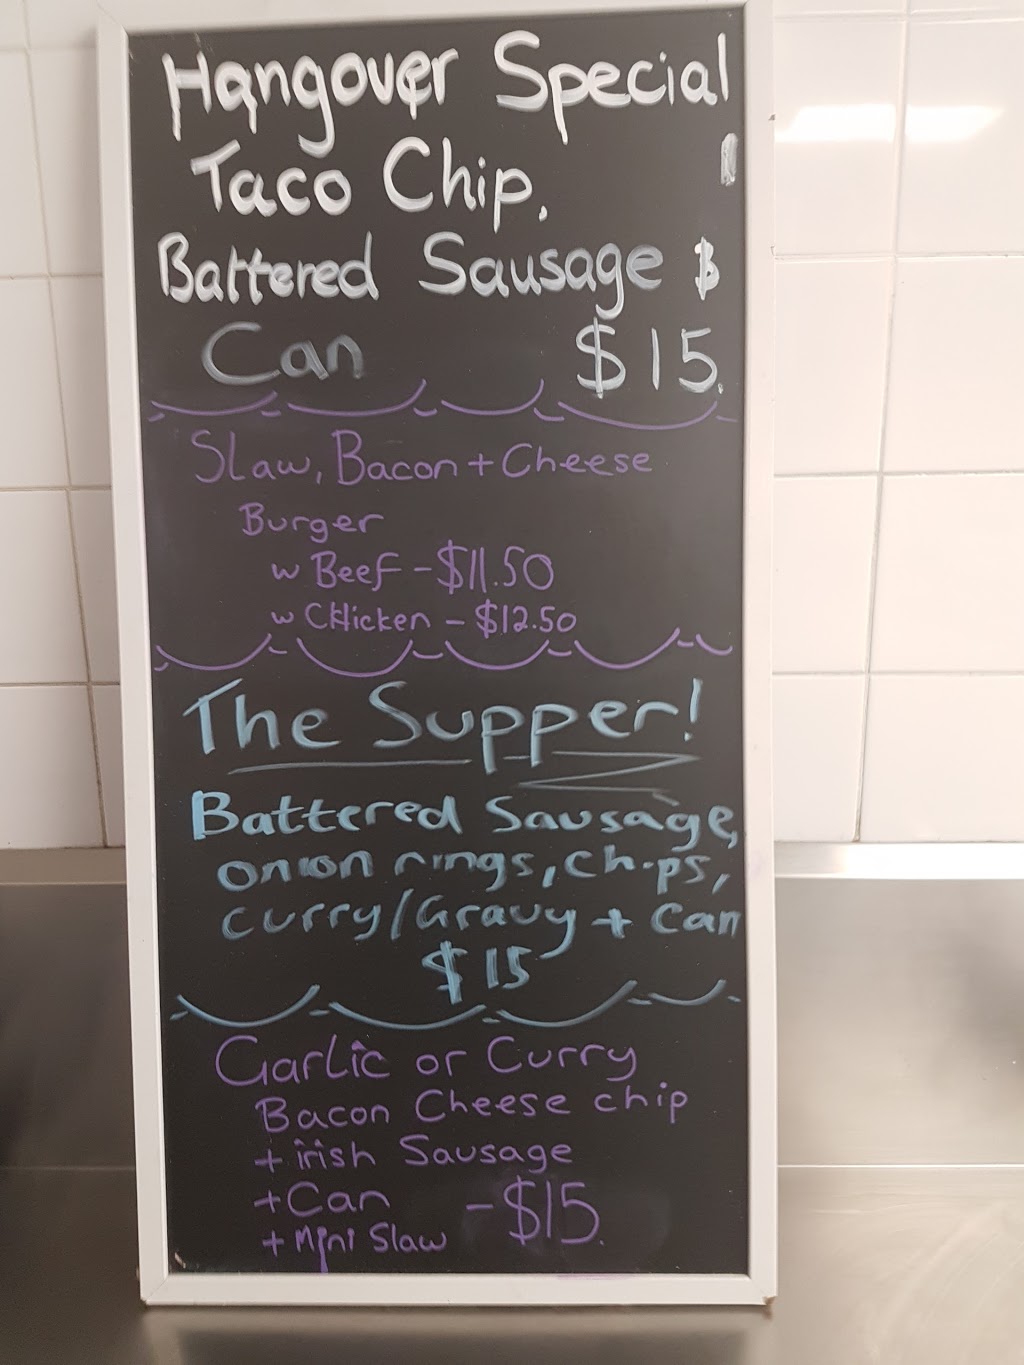 Hangover Special
Taco Chip.
Battered Sausage $
Can $15.
Slaw, Bacon + Cheese
Burger
w Beef - $11.50
w CHicken - $12.50
The Supper!
Battered Sausage,
onion rings, chips,
curry/Gravy + Can
$15
Garlic or Curry
Bacon Cheese chip
+ irish Sausage
+ Can - $15.
+ Mini Slaw